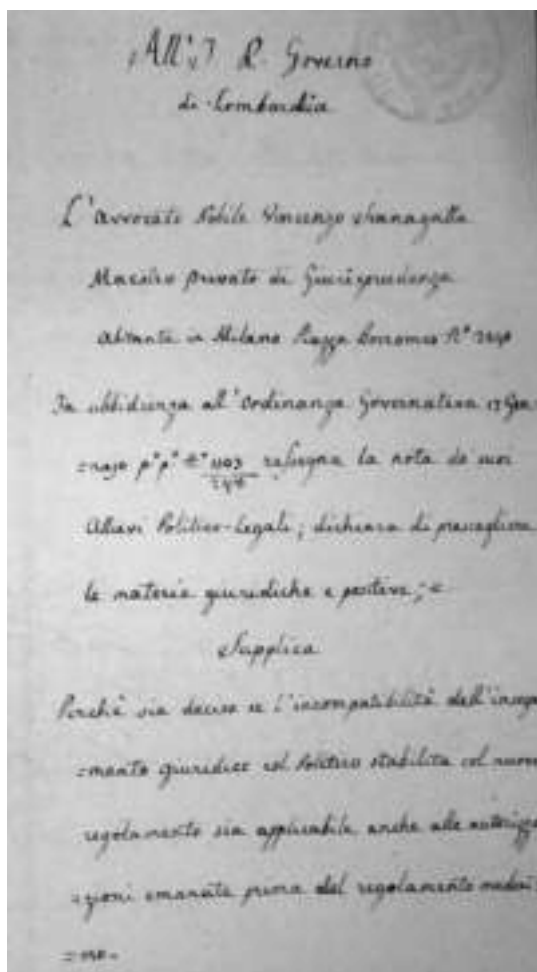 All' I. R. Governo
di Lombardia
L'avvocato Nobile Vincenzo
Maestro privato di Giurisprudenza
abitante in Milano Piazza Borromeo N°
In ubbidienza all'ordinanza Governativa 17 Gen
=najo p° p° N° 1103 rassegna la nota de suoi
Allievi Politico-Legali; dichiara di prescegliere
le materie giuridiche e positive; e
Supplica
Perchè sia deciso se l'incompatibilità dell'inseg
=mento giuridico col Politico stabilita col nuovo
regolamento sia applicabile anche alle autorizza
=zioni emanate prima del regolamento medes
=mo.